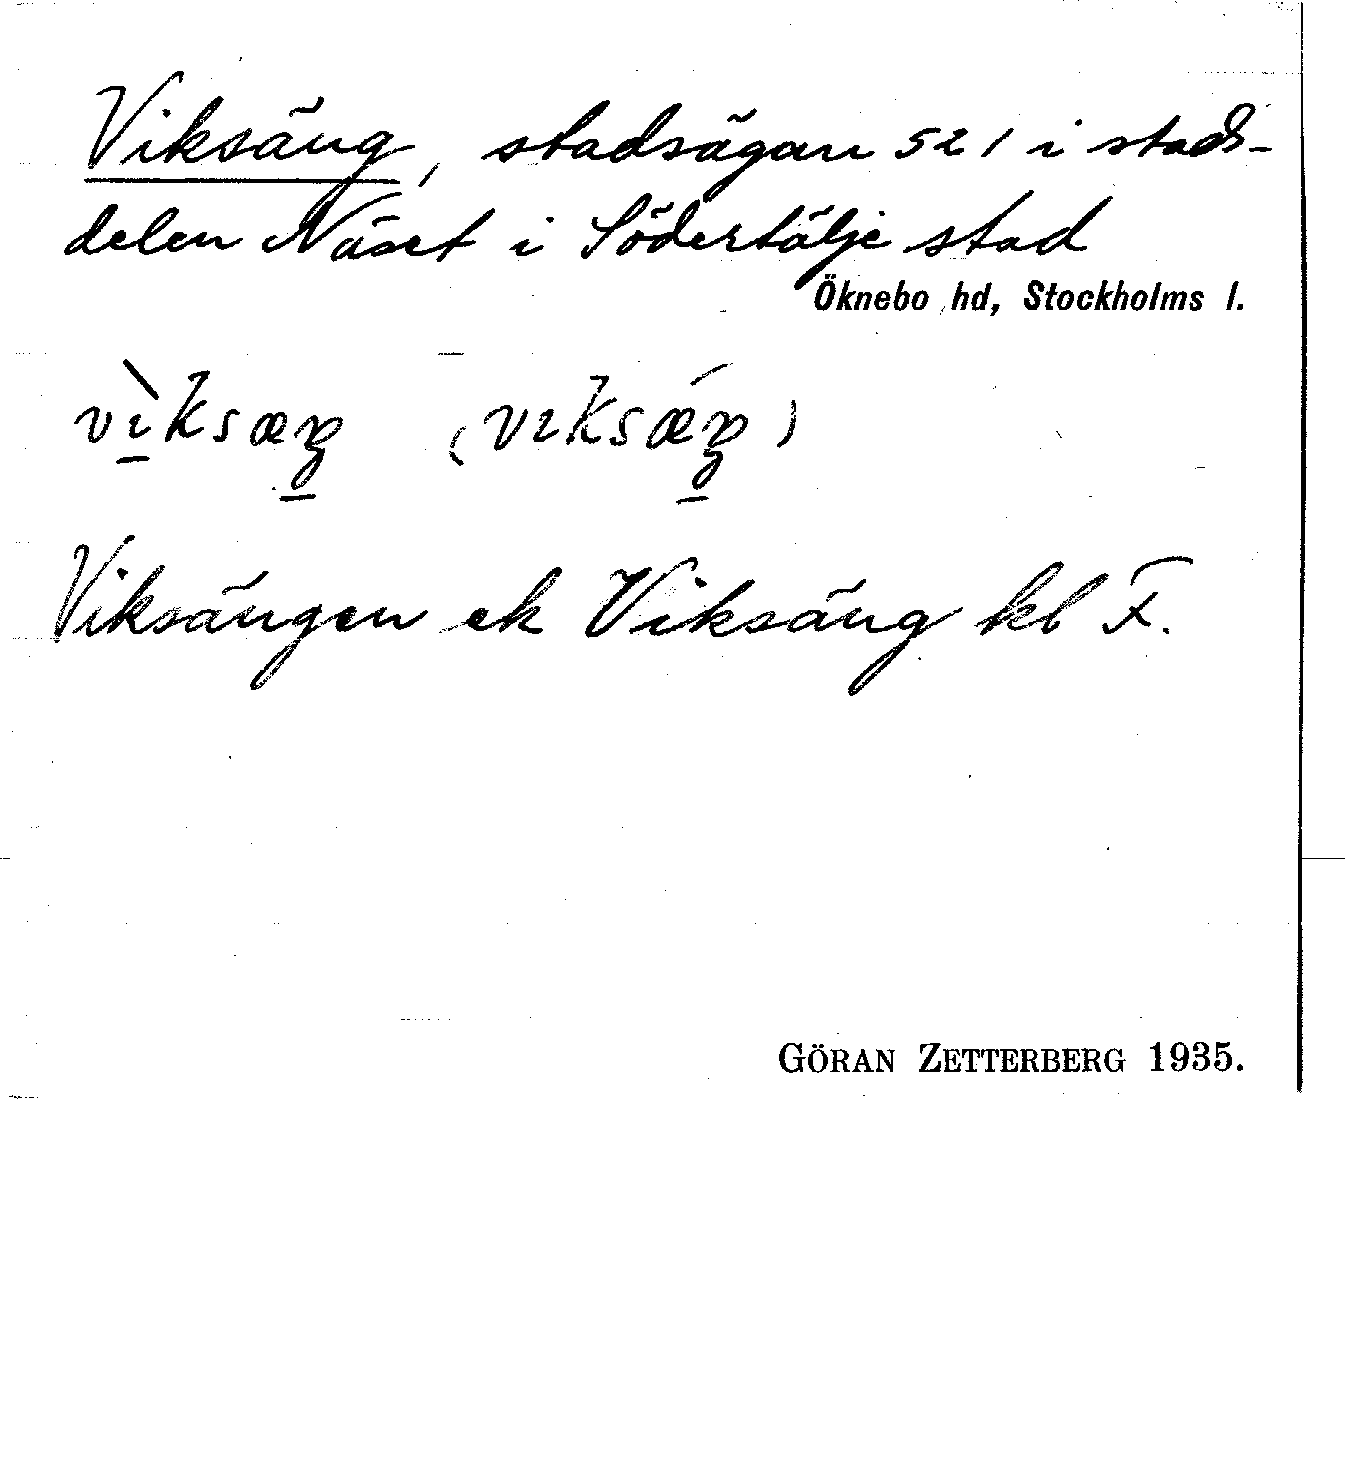 Viksäng, stadsägan 521 i stads-
delen Näset i Södertälje stad
Öknebo hd, Stockholms l.
vìksæŋ (vıksǽŋ)
Viksängen ek Viksäng kl F.
GÖRAN ZETTERBERG 1935.